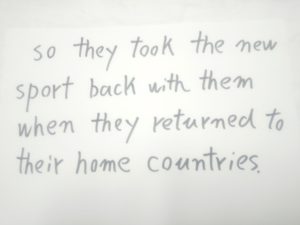 so they took the new
sport back with them
when they returned to
their home countries.